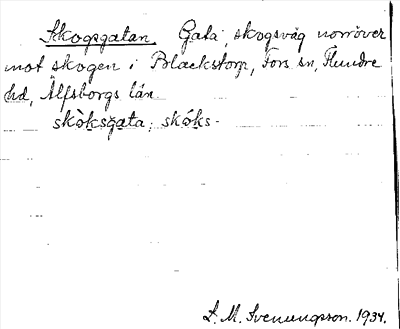 Skogsgatan. Gata; skogsväg norröver
mot skogen i Blackstorp, Fors sn, Flundre
hd, Älfsborgs län
skòksgata; skóks-
S. M. Svenungsson. 1934.